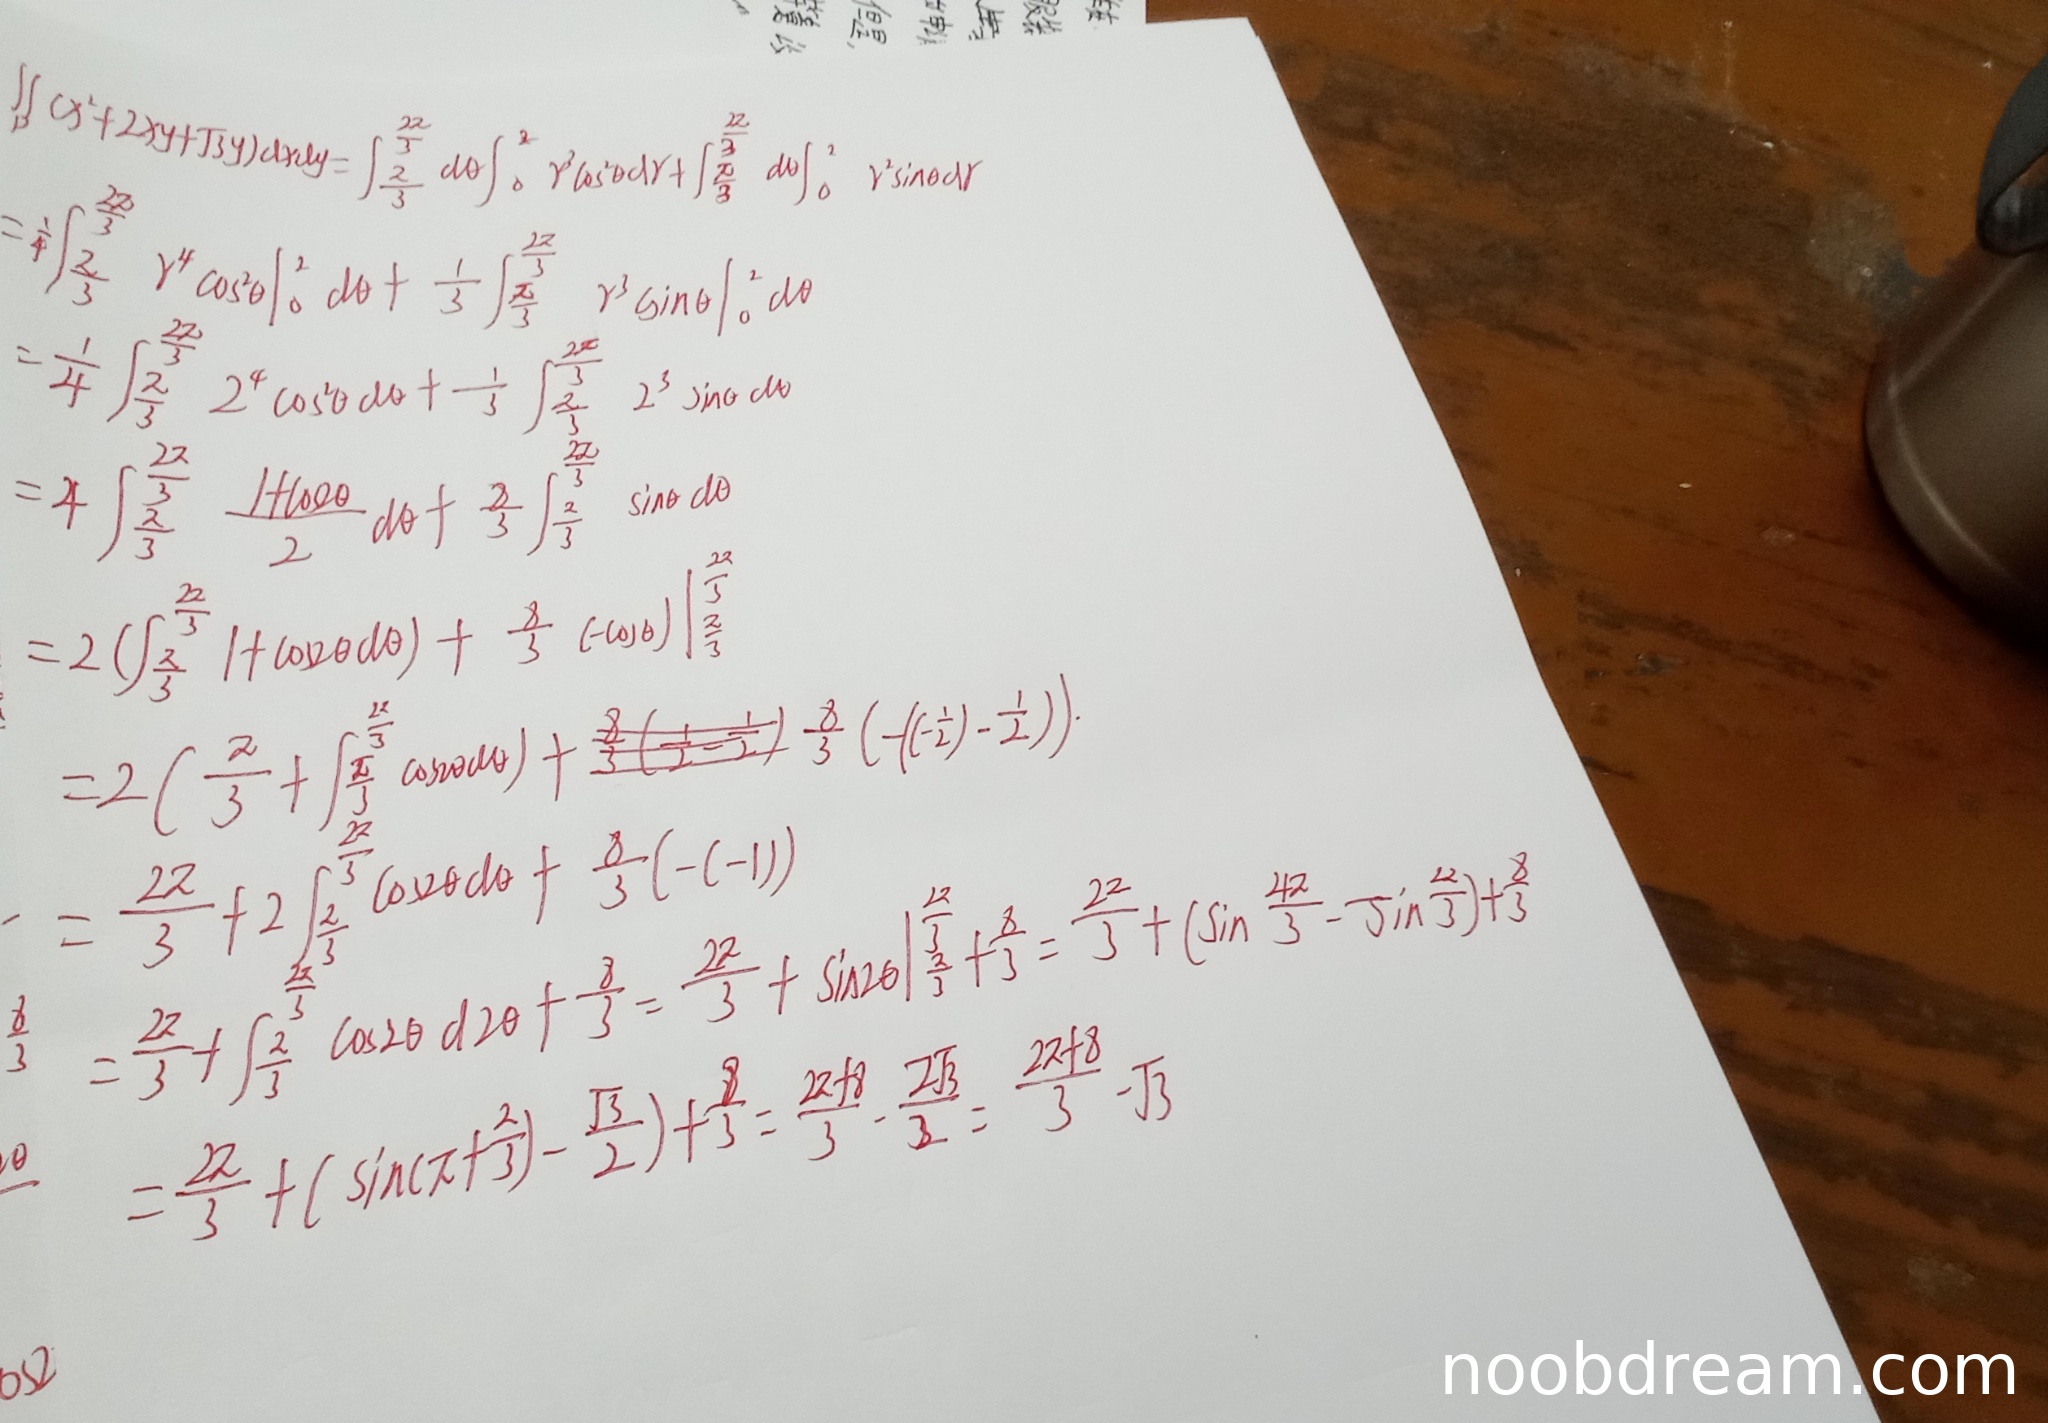 ∬_D (x²+2xy+√3y)dxdy = ∫_{π/3}^{2π/3} dθ ∫_0^2 r³cos²θdr + ∫_{π/3}^{2π/3} dθ ∫_0^2 r²sinθdr
= 1/4 ∫_{π/3}^{2π/3} r⁴cos²θ|_0^2 dθ + 1/3 ∫_{π/3}^{2π/3} r³sinθ|_0^2 dθ
= 1/4 ∫_{π/3}^{2π/3} 2⁴cos²θdθ + 1/3 ∫_{π/3}^{2π/3} 2³ sinθdθ
= 4 ∫_{π/3}^{2π/3} (1+cos2θ)/2 dθ + 8/3 ∫_{π/3}^{2π/3} sinθ dθ
= 2(∫_{π/3}^{2π/3} 1+cos2θdθ) + 8/3 (-cosθ)|_{π/3}^{2π/3}
= 2(π/3 + ∫_{π/3}^{2π/3} cos2θdθ) + 8/3 (-((-1/2)-1/2)).
= 2π/3 + 2∫_{π/3}^{2π/3} cos2θdθ + 8/3(-(-1))
= 2π/3 + ∫_{π/3}^{2π/3} cos2θ d2θ + 8/3 = 2π/3 + sin2θ|_{π/3}^{2π/3} + 8/3 = 2π/3 + (sin 4π/3 - sin 2π/3) + 8/3
= 2π/3 + (sin(π+π/3) - √3/2) + 8/3 = (2π+8)/3 - 2√3/2 = (2π+8)/3 - √3
8/3
noobdream.com